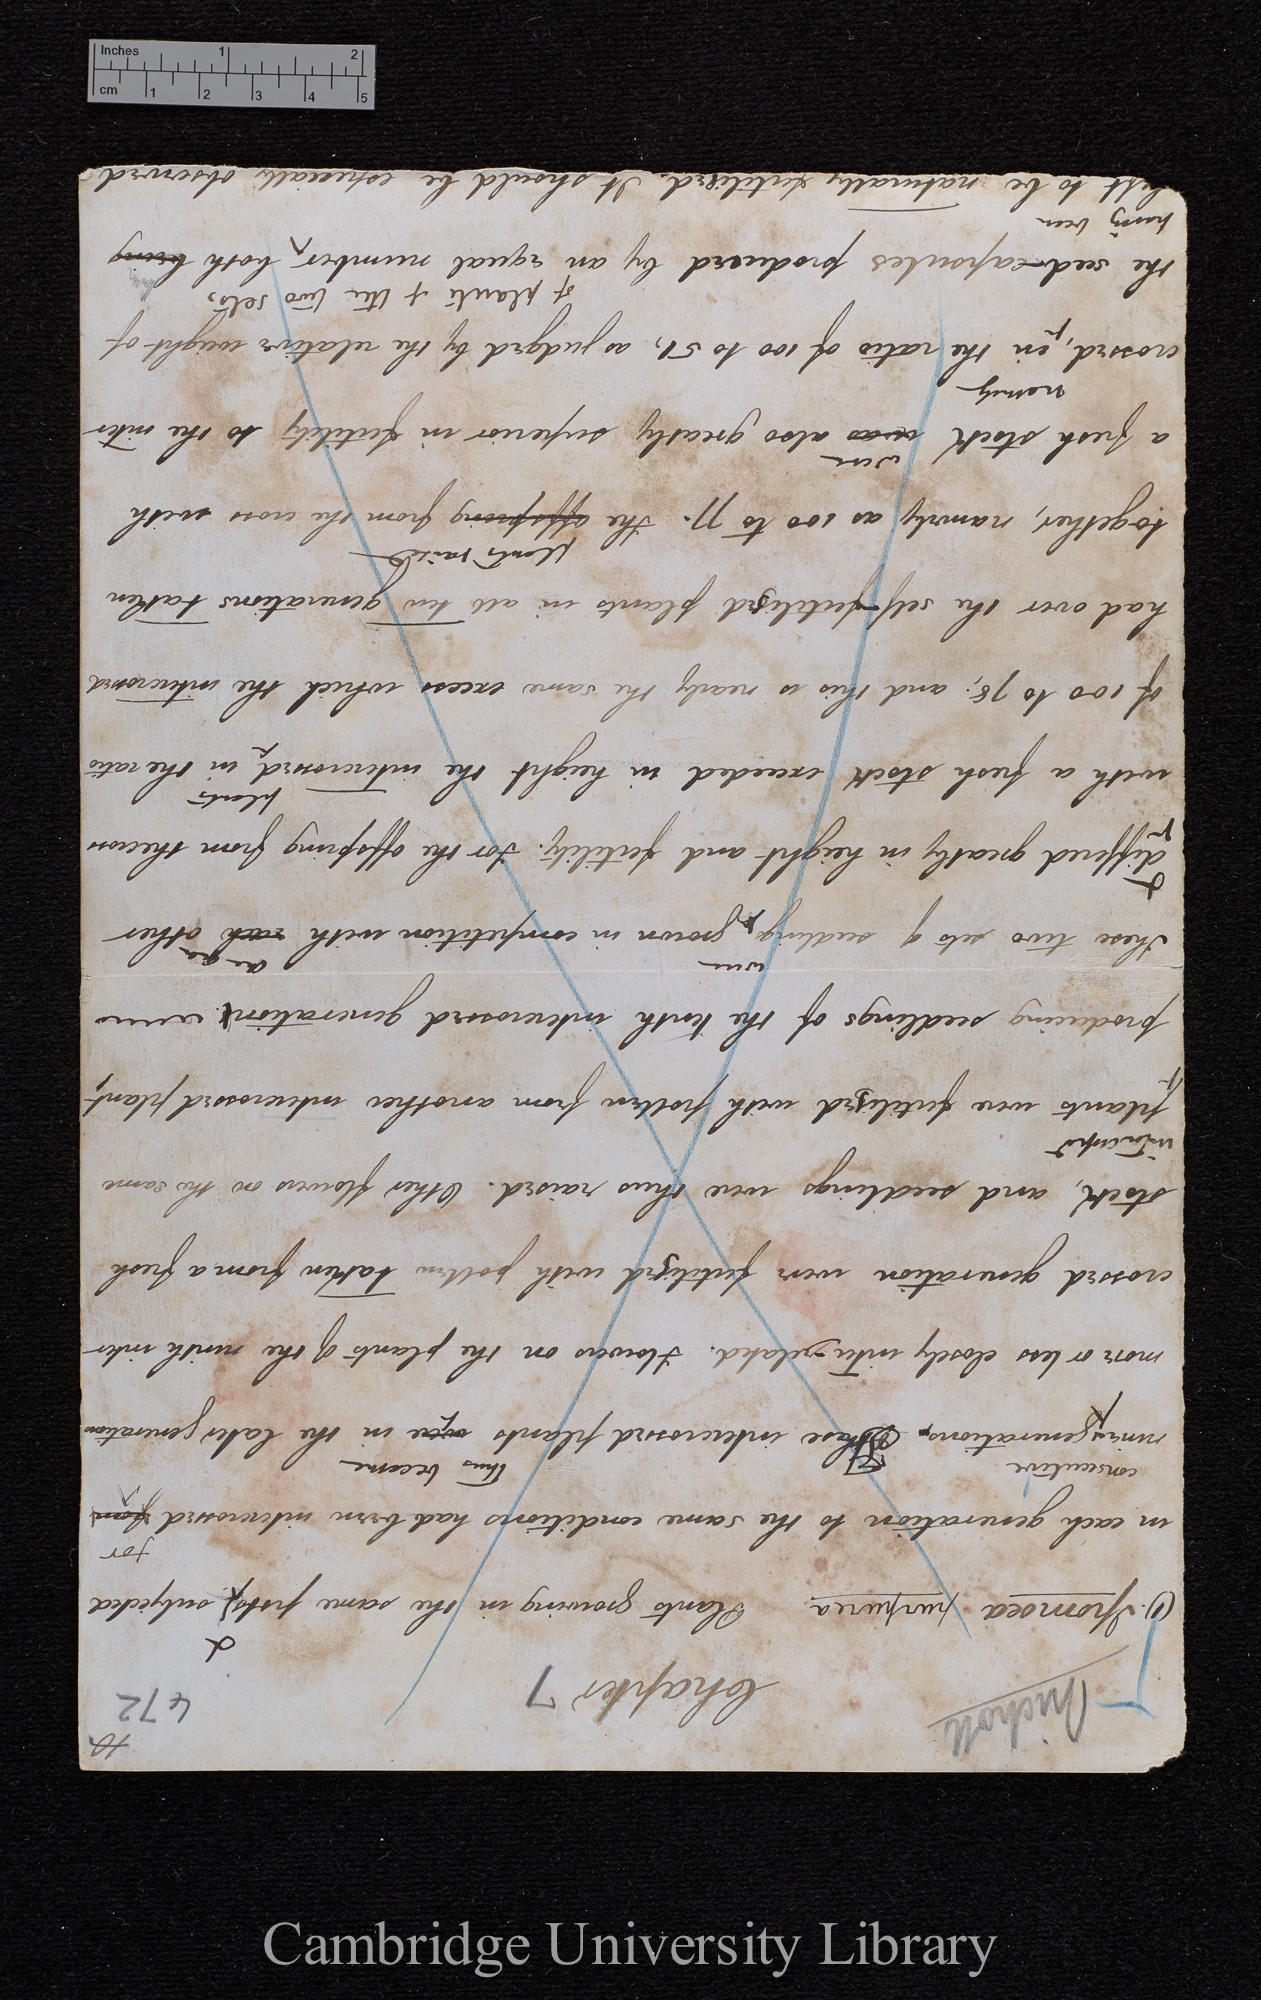 Inches 1 2
cm 1 2 3 4 5
472
Nicholl
Chapter 7
&
(1). Ipomoea purpurea Plants growing in the same pots, subjected
for
in each generation to the same conditions had been intercrossed for
consecutive thus become
nine generations. These intercrossed plants are in the later generations
more or less closely inter-related. Flowers on the plants of the ninth inter-
crossed generation were fertilised with pollen taken from a fresh
stock, and seedlings were thus raised. Other flowers on the same
intercrossed
plants were fertilised with pollen from another intercrossed plant,
producing seedlings of the tenth intercrossed generation.
were
these two sets of seedlings grown in competition with each other
&
differed greatly in height and fertility. For the offspring from the cross
plants
with a fresh stock exceeded in height the intercrossed in the ratio
of 100 to 78; and this is nearly the same excess which the intercrossed
had over the self-fertilised plants in all ten generations taken
plants raised
together, namely as 100 to 77. The offspring from the cross with
were
a fresh stock was also greatly superior in fertility to the inter-
namely
crossed, in the ratio of 100 to 51, as judged by the relative weight of
of plants of the two sets,
the seed-capsules produced by an equal number, both being
having been
left to be naturally fertilised. It should be especially observed
Cambridge University Library